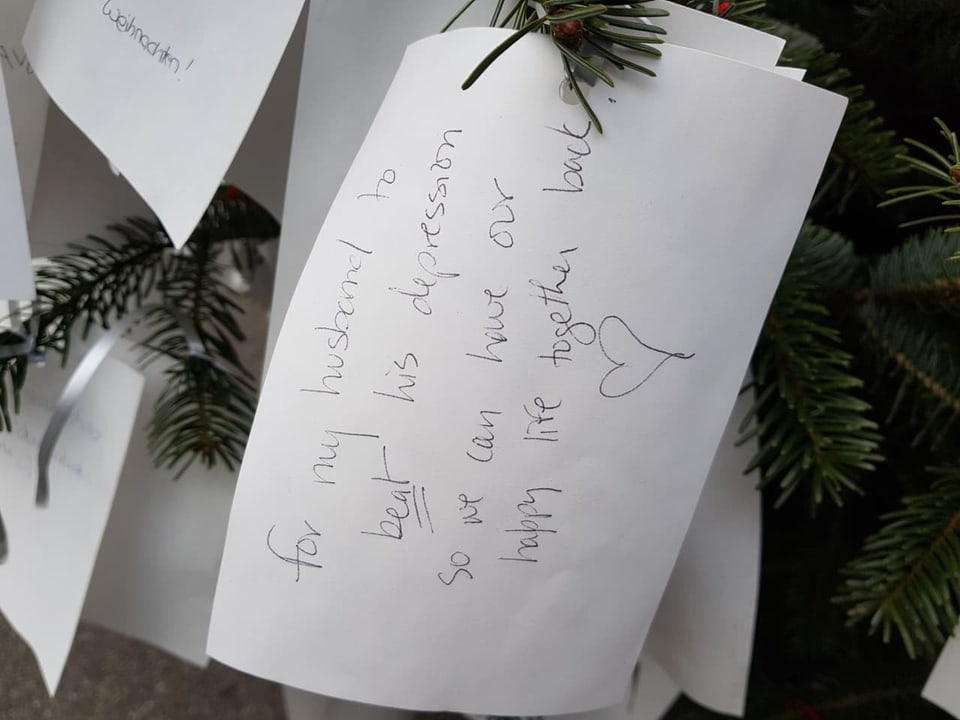 Weihnachten!
for my husband to
beat his depression
so we can have our
happy life together back!